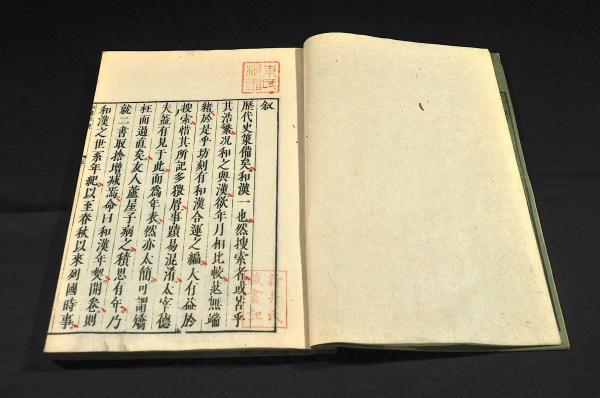 叙
歷代史策備矣和漢一也然搜索者或苦乎
其浩繁况和之與漢欲年月相比較茫無端
緒於是乎坊刻有和漢合運之編大有益於
搜索惜其所記多猥屑事蹟易混淆太宰德
夫蓋有見于此而為年表然亦太簡可謂矯
枉而過直矣友人蘆屋子病之積思有年乃
就二書取捨增減焉命曰和漢年契開卷則
和漢之世系年紀以至春秋以來列國時事